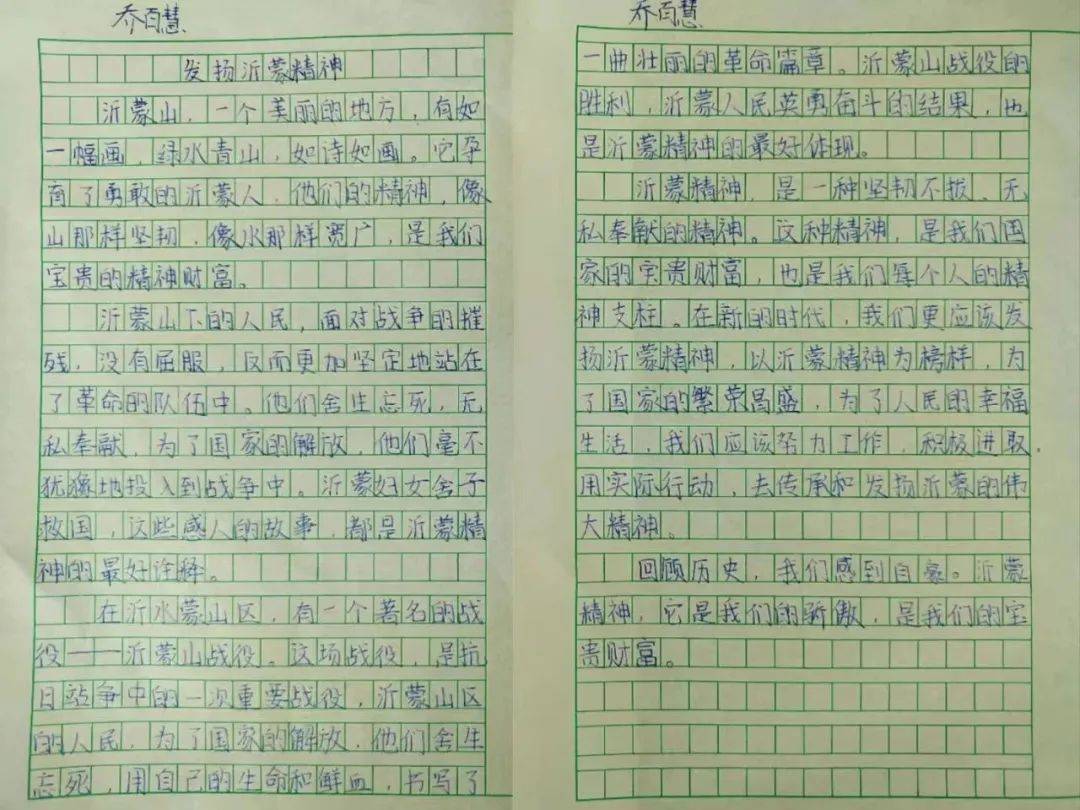 乔百慧
发扬沂蒙精神
沂蒙山，一个美丽的地方，有如
一幅画，绿水青山，如诗如画。它孕
育了勇敢的沂蒙人，他们的精神，像
山那样坚韧，像水那样宽广，是我们
宝贵的精神财富。
沂蒙山下的人民，面对战争的摧
残，没有屈服，反而更加坚定地站在
了革命的队伍中。他们舍生忘死，无
私奉献，为了国家的解放，他们毫不
犹豫地投入到战争中。沂蒙妇女舍子
救国，这些感人的故事，都是沂蒙精
神的最好诠释。
在沂水蒙山区，有一个著名的战
役——沂蒙山战役。这场战役，是抗
日站争中的一次重要战役，沂蒙山区
的人民，为了国家的解放，他们舍生
忘死，用自己的生命和鲜血，书写了
乔百慧
一曲壮丽的革命篇章。沂蒙山战役的
胜利，沂蒙人民英勇奋斗的结果，也
是沂蒙精神的最好体现。
沂蒙精神，是一种坚韧不拔、无
私奉献的精神。这种精神，是我们国
家的宝贵财富，也是我们每个人的精
神支柱。在新的时代，我们更应该发
扬沂蒙精神，以沂蒙精神为榜样，为
了国家的繁荣昌盛，为了人民的幸福
生活，我们应该努力工作，积极进取，
用实际行动，去传承和发扬沂蒙的伟
大精神。
回顾历史，我们感到自豪。沂蒙
精神，它是我们的骄傲，是我们的宝
贵财富。